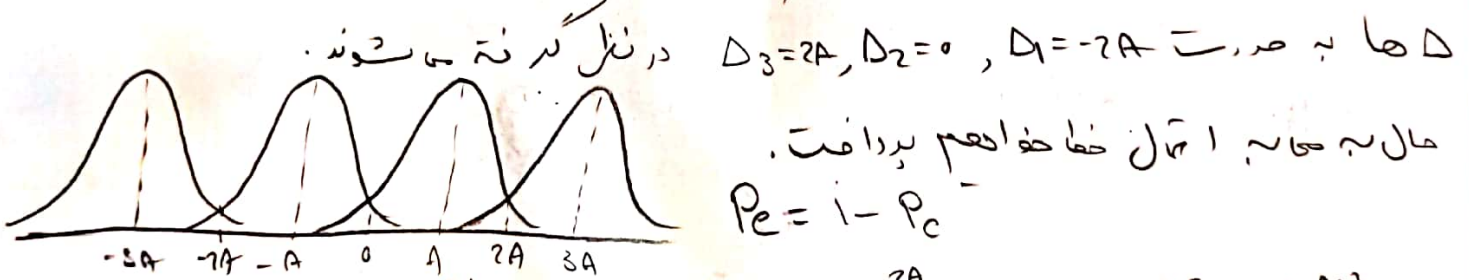 Δ ها به صورت Δ1=-2A , Δ2=0 , Δ3=2A در نظر گرفته می شوند.
حال به محاسبه احتمال خطا خواهیم پرداخت.
Pe = 1 - Pc
-3A -2A -A 0 A 2A 3A
2A